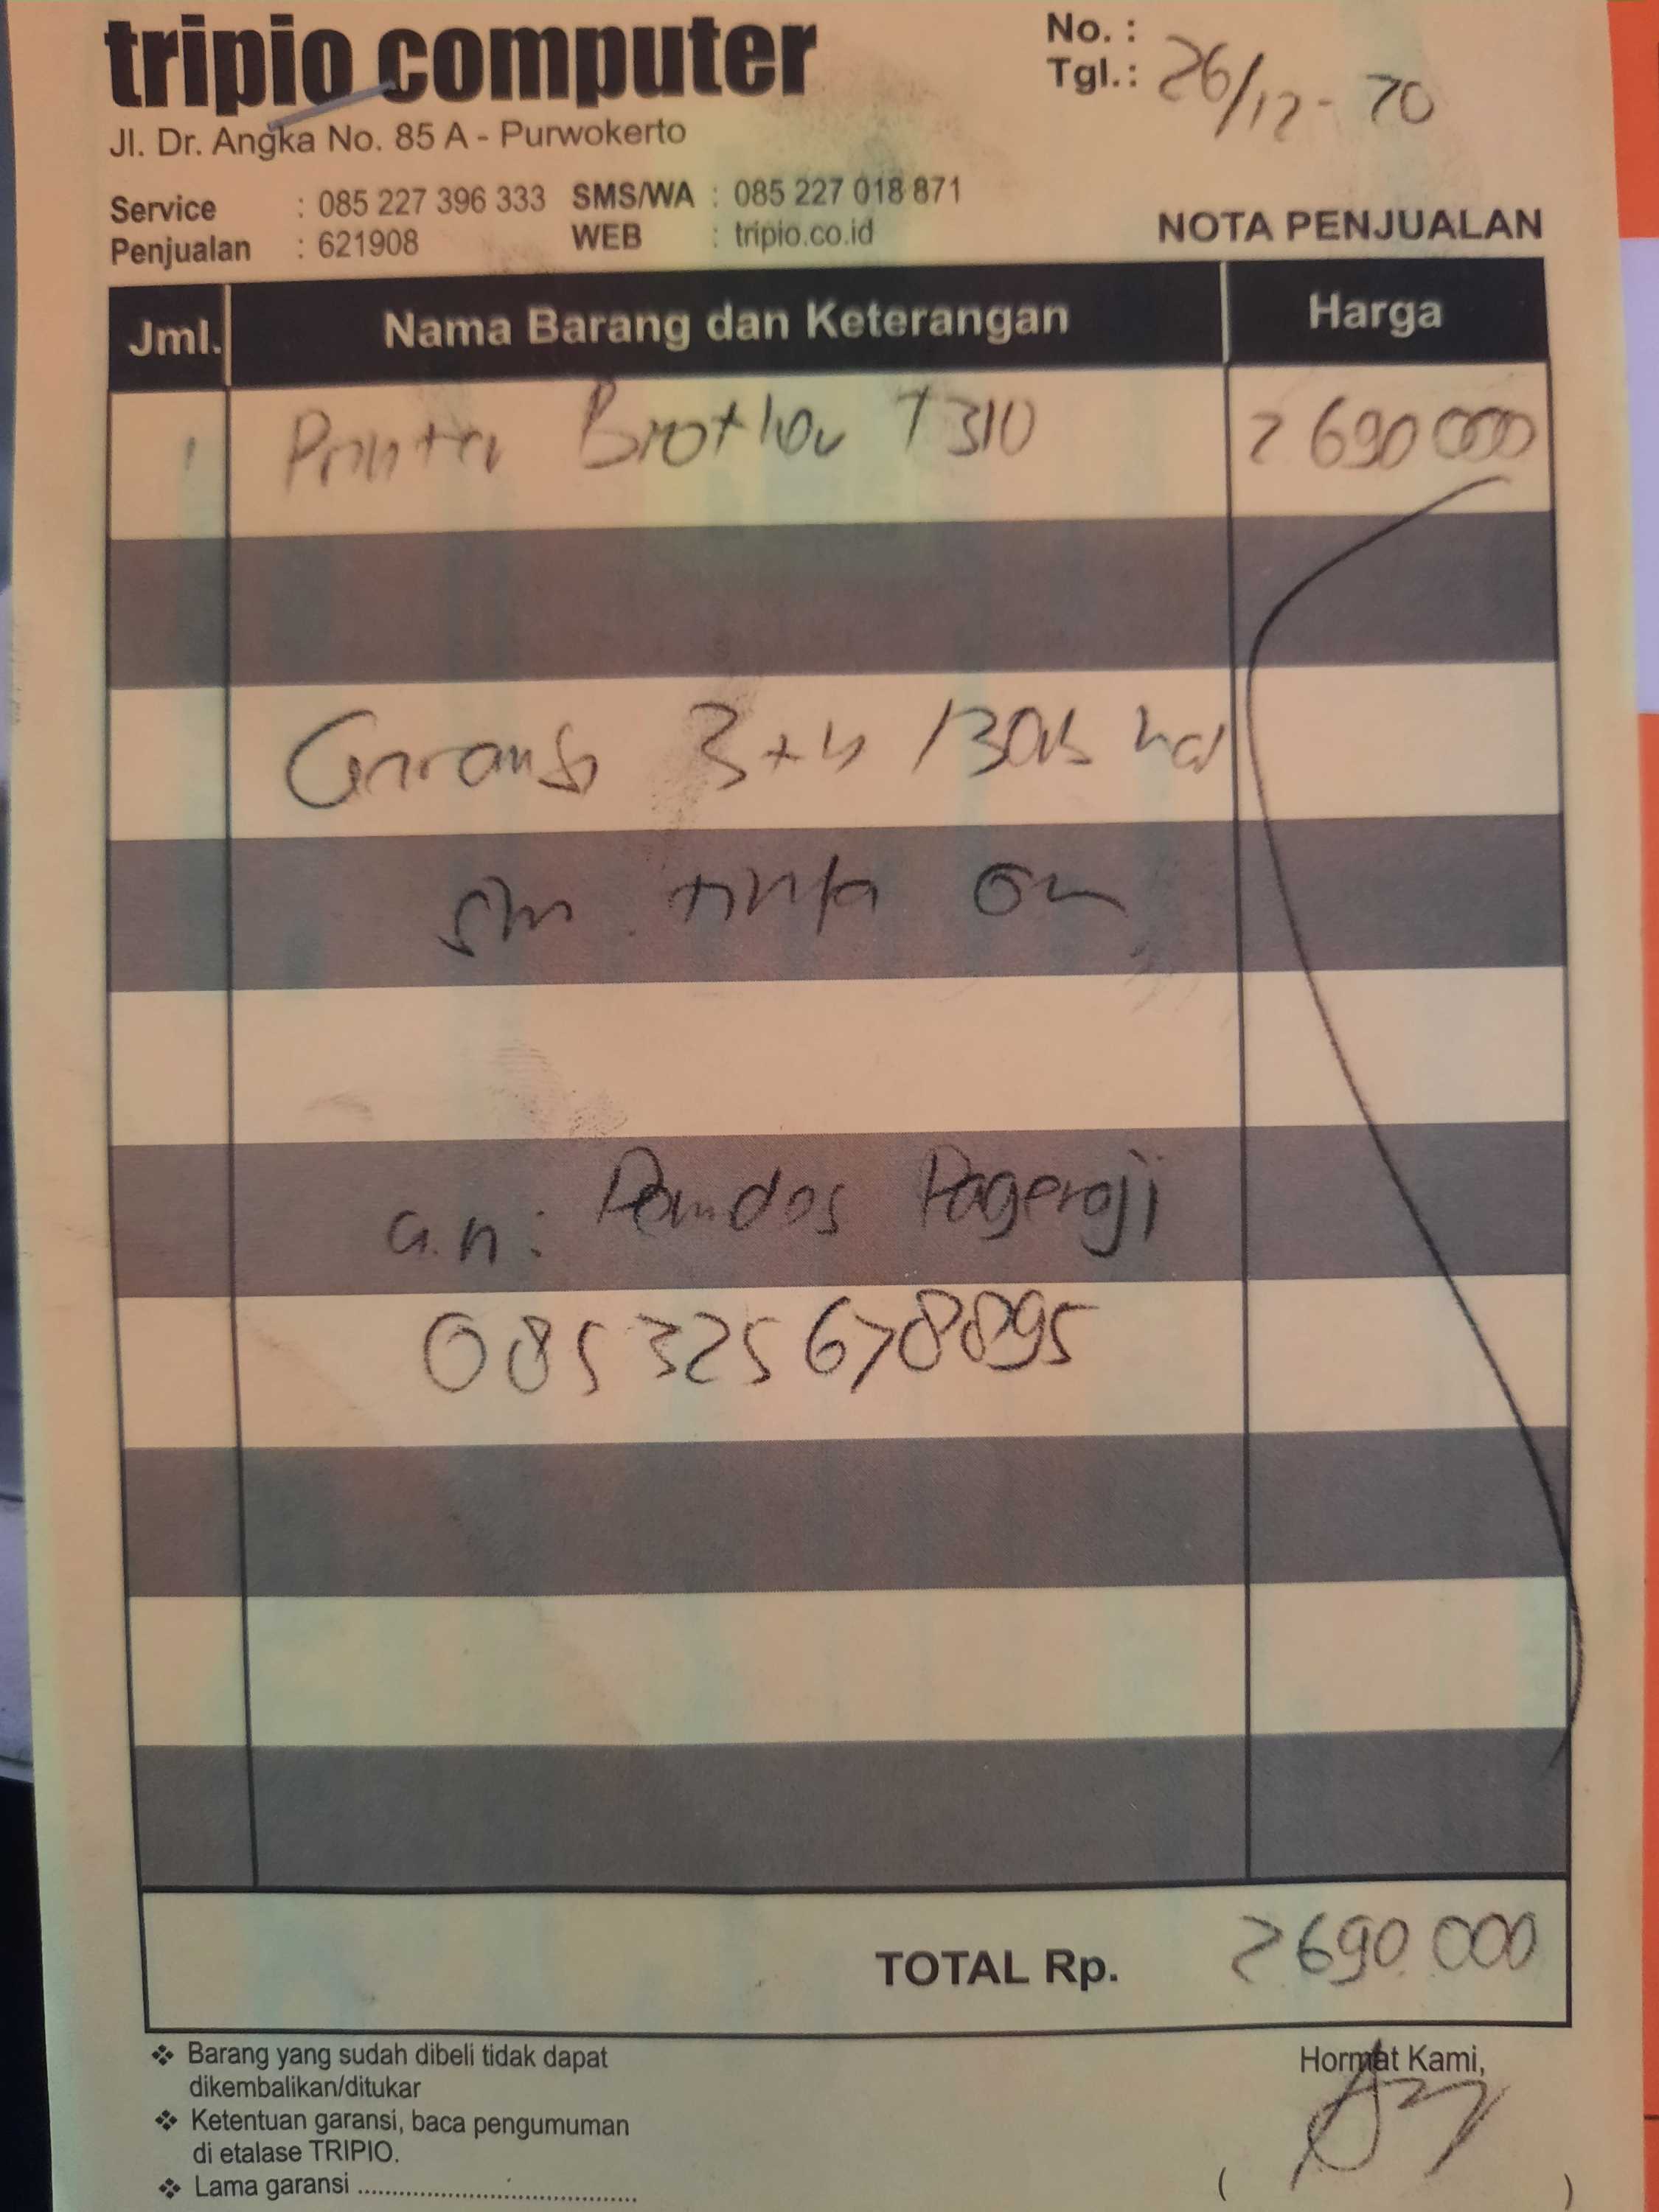 tripio computer
Jl. Dr. Angka No. 85 A - Purwokerto
No. :
Tgl. : 26/12-20
Service : 085 227 396 333 SMS/WA : 085 227 018 871
Penjualan : 621908 WEB : tripio.co.id
NOTA PENJUALAN
Jml. Nama Barang dan Keterangan Harga
1 Printer Brother T310 2 690 000
Garansi 3 th /30rb
tinta
a.n: Pamdos Pageraji
085325678895
TOTAL Rp. 2 690.000
❖ Barang yang sudah dibeli tidak dapat
dikembalikan/ditukar
❖ Ketentuan garansi, baca pengumuman
di etalase TRIPIO.
❖ Lama garansi ........................................
Hormat Kami,
( )